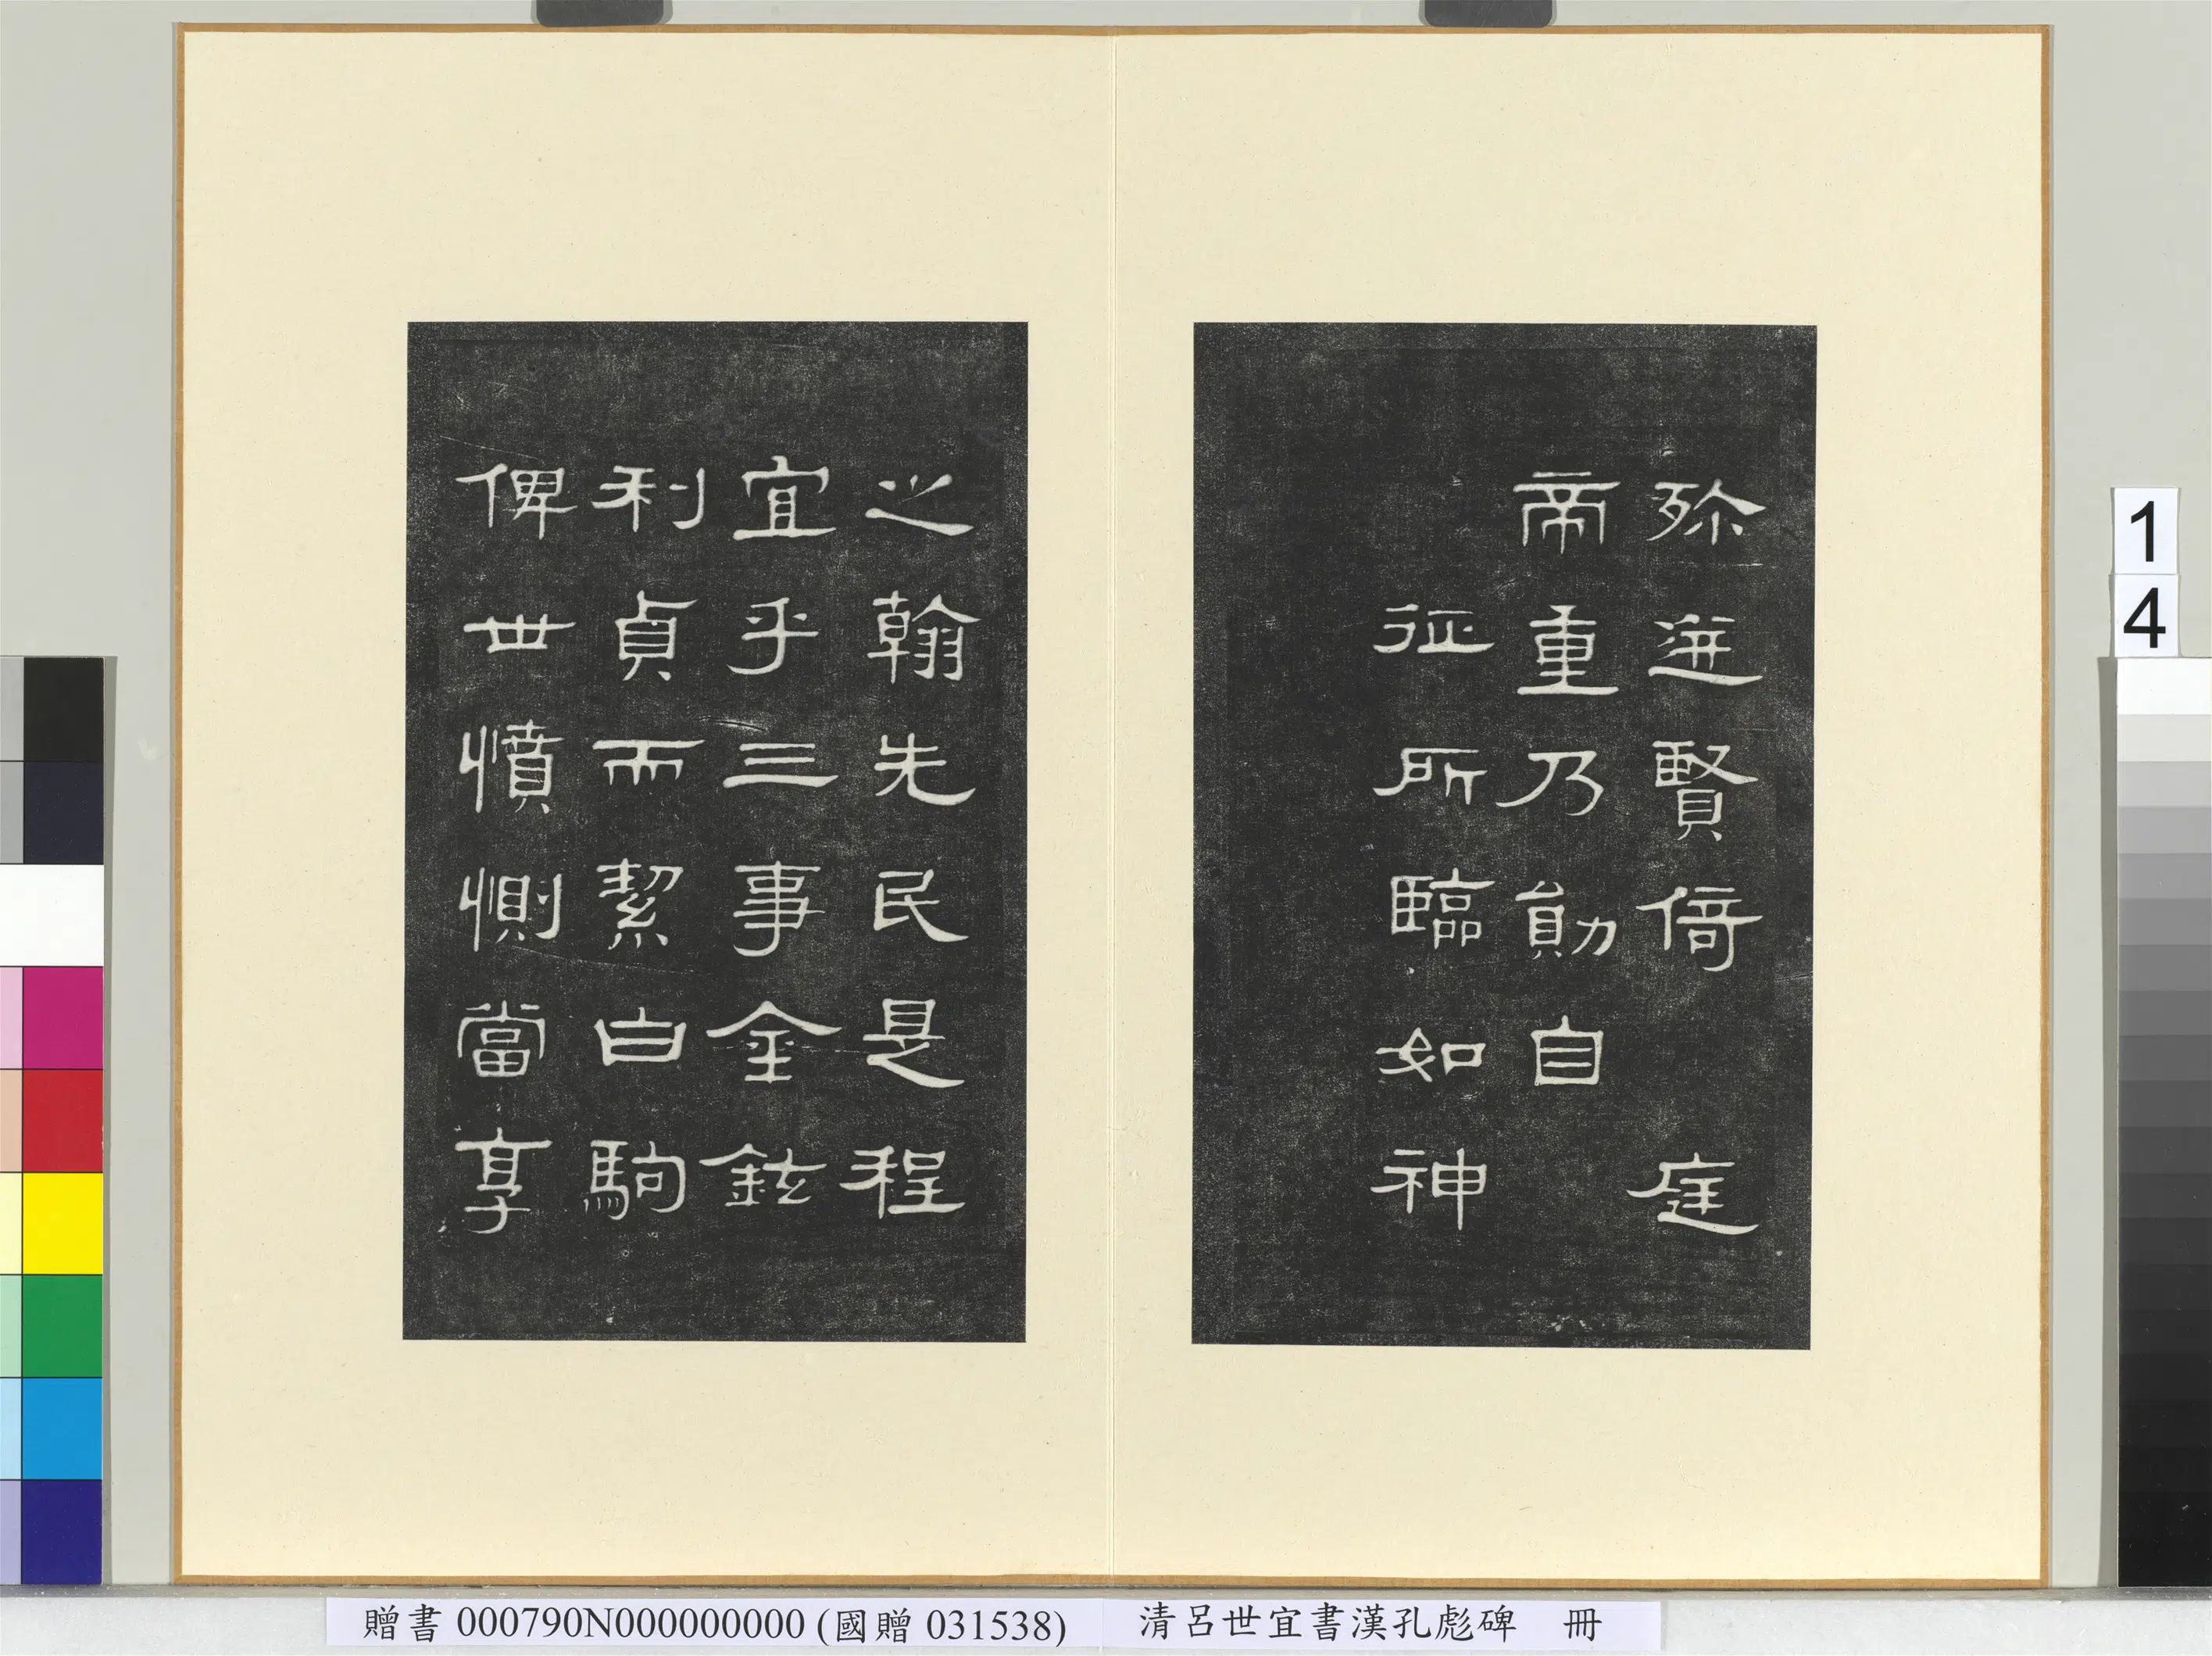 殄迸賢倚 庭
帝重乃勛自
征所臨如神
之翰先民是程
宜乎三事金鉉
利貞而絜白駒
俾世憤惻當享
1
4
贈書 000790N000000000 (國贈 031538) 清呂世宜書漢孔彪碑 冊